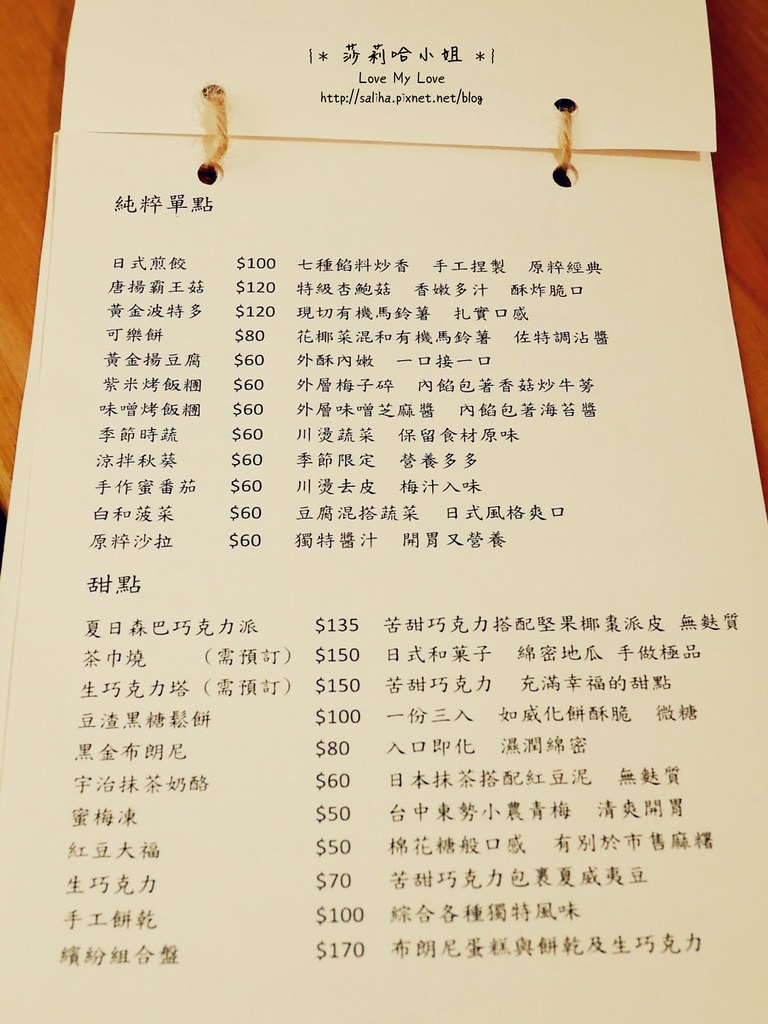 {* 莎莉哈小姐 *}
Love My Love
http://saliha.pixnet.net/blog
純粹單點
日式煎餃 $100 七種餡料炒香 手工捏製 原粹經典
唐揚霸王菇 $120 特級杏鮑菇 香嫩多汁 酥炸脆口
黃金波特多 $120 現切有機馬鈴薯 扎實口感
可樂餅 $80 花椰菜混和有機馬鈴薯 佐特調沾醬
黃金揚豆腐 $60 外酥內嫩 一口接一口
紫米烤飯糰 $60 外層梅子碎 內餡包著香菇炒牛蒡
味噌烤飯糰 $60 外層味噌芝麻醬 內餡包著海苔醬
季節時蔬 $60 川燙蔬菜 保留食材原味
涼拌秋葵 $60 季節限定 營養多多
手作蜜番茄 $60 川燙去皮 梅汁入味
白和菠菜 $60 豆腐混搭蔬菜 日式風格爽口
原粹沙拉 $60 獨特醬汁 開胃又營養
甜點
夏日森巴巧克力派 $135 苦甜巧克力搭配堅果椰棗派皮 無麩質
茶巾燒 （需預訂） $150 日式和菓子 綿密地瓜 手做極品
生巧克力塔（需預訂） $150 苦甜巧克力 充滿幸福的甜點
豆渣黑糖鬆餅 $100 一份三入 如威化餅酥脆 微糖
黑金布朗尼 $80 入口即化 濕潤綿密
宇治抹茶奶酪 $60 日本抹茶搭配紅豆泥 無麩質
蜜梅凍 $50 台中東勢小農青梅 清爽開胃
紅豆大福 $50 棉花糖般口感 有別於市售麻糬
生巧克力 $70 苦甜巧克力包裹夏威夷豆
手工餅乾 $100 綜合各種獨特風味
繽紛組合盤 $170 布朗尼蛋糕與餅乾及生巧克力